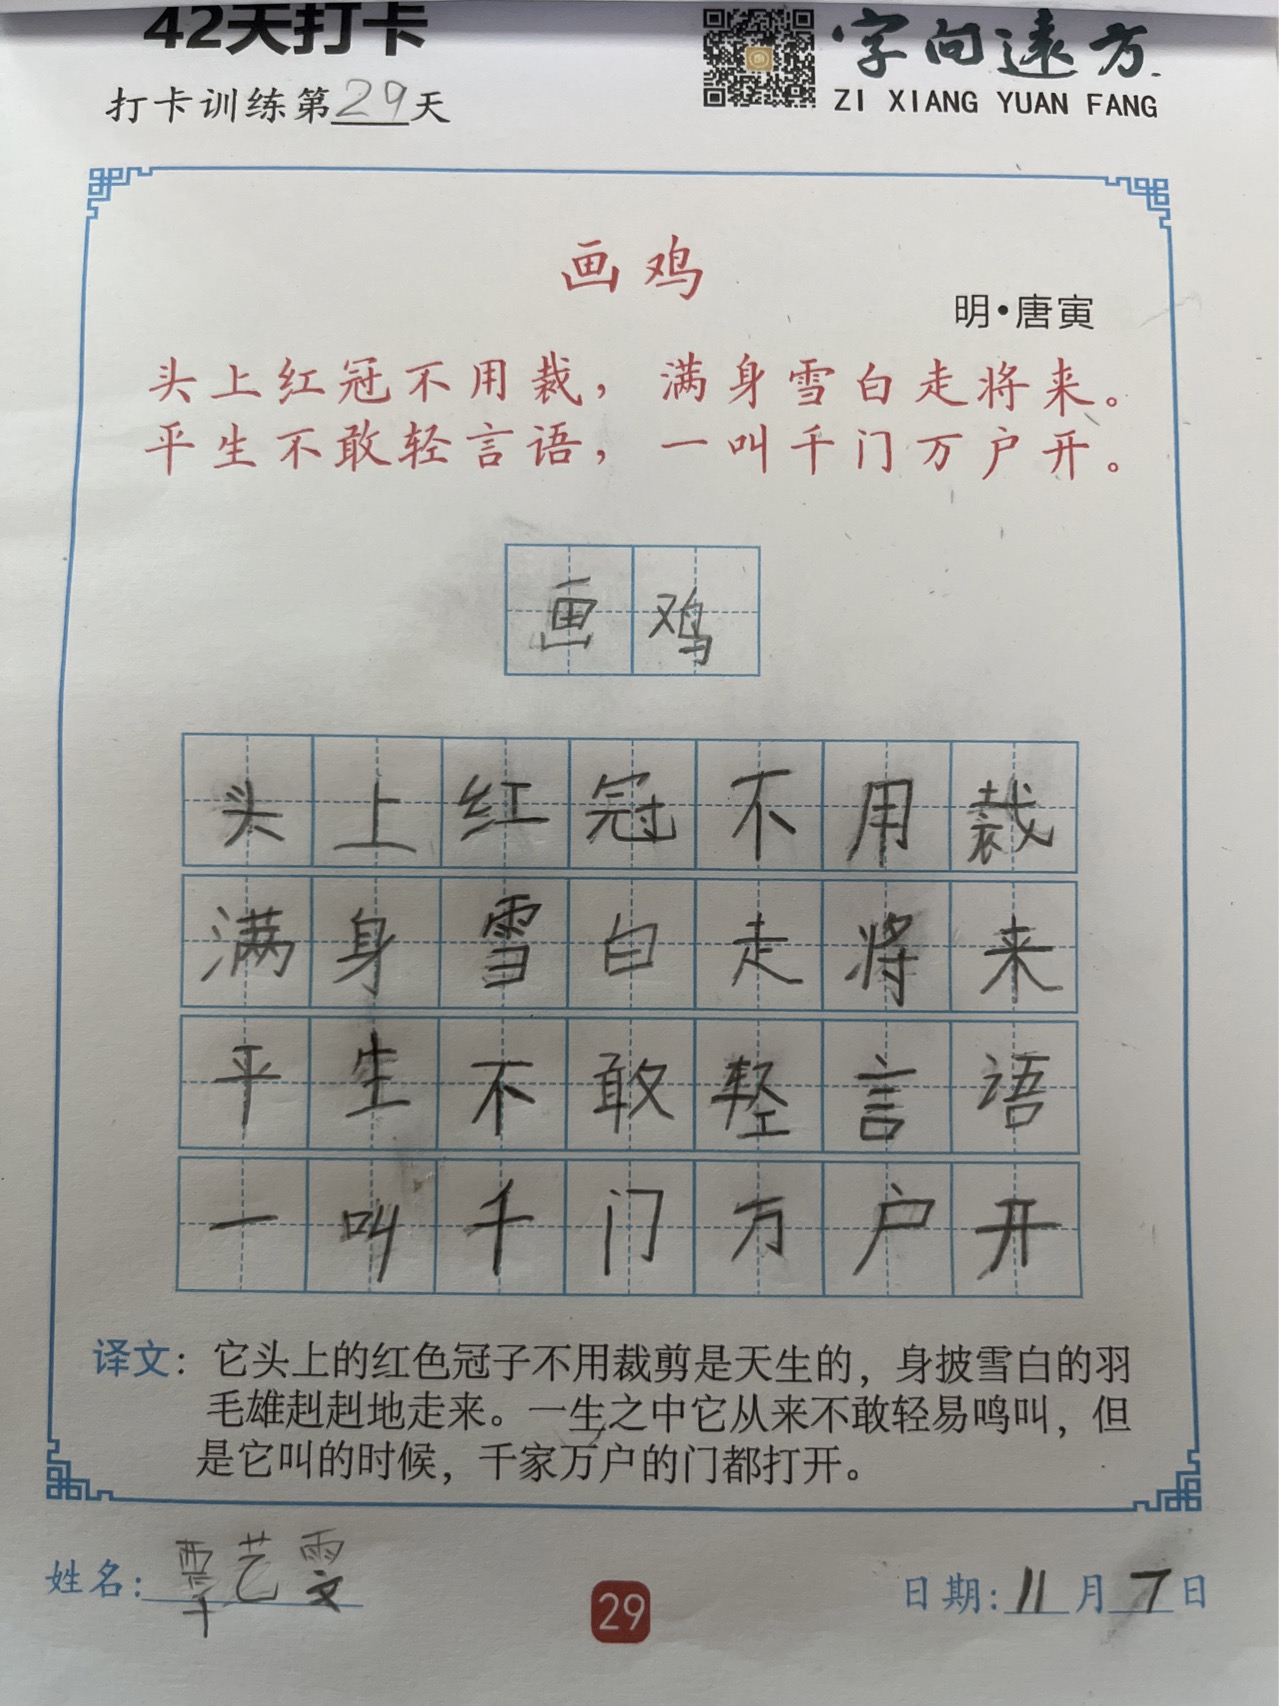 42天打卡
打卡训练第29天
字向遠方
ZI XIANG YUAN FANG
画鸡
明•唐寅
头上红冠不用裁，满身雪白走将来。
平生不敢轻言语，一叫千门万户开。
画鸡
头上红冠不用裁
满身雪白走将来
平生不敢轻言语
一叫千门万户开
译文：它头上的红色冠子不用裁剪是天生的，身披雪白的羽
毛雄赳赳地走来。一生之中它从来不敢轻易鸣叫，但
是它叫的时候，千家万户的门都打开。
姓名：覃艺雯
29
日期：11月7日